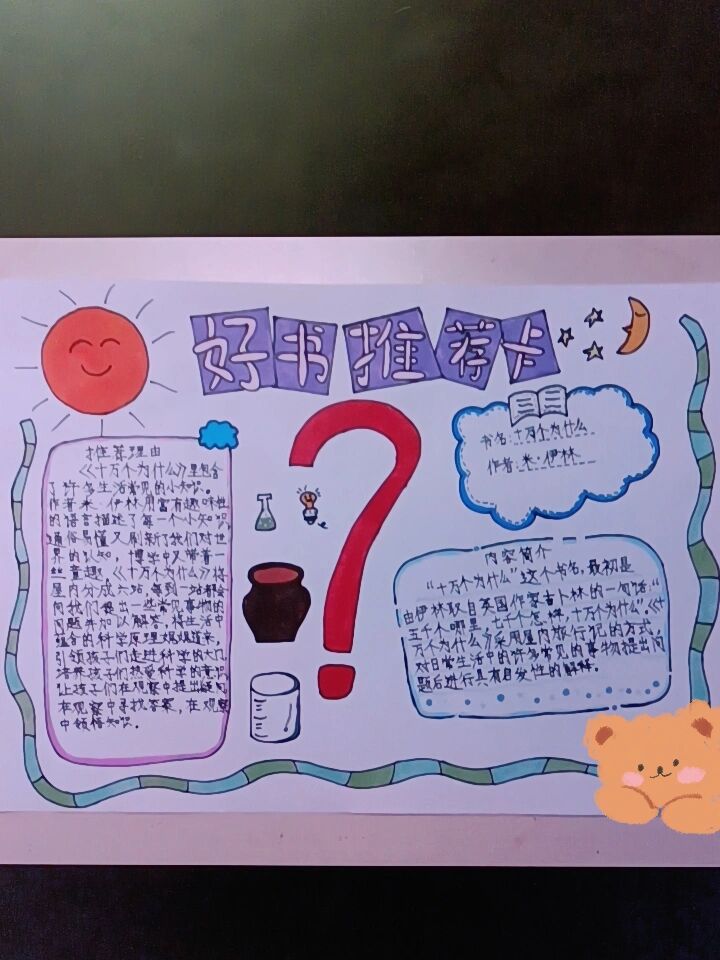 好书推荐卡
书名:十万个为什么
作者:米·伊林
推荐理由
《十万个为什么》里包含
了许多生活常见的小知识。
作者米·伊林用富有趣味性
的语言描述了每一个小知识,
通俗易懂又刷新了我们对世
界的认知,博学中又带着一
丝童趣。《十万个为什么》将
屋内分成六站,每到一站都会
向我们提出一些常见事物的
问题并加以解答,将生活中
蕴含的科学原理娓娓道来,
引领孩子们走进科学的大门,
培养孩子们热爱科学的意识,
让孩子们在观察中提出疑问,
在观察中寻找答案,在观察
中领悟知识。
内容简介
“十万个为什么”这个书名,最初是
由伊林取自英国作家吉卜林的一句话:“
五千个哪里,七千个怎样,十万个为什么”,《十
万个为什么》采用屋内旅行记的方式,
对日常生活中的许多常见的事物提出问
题后进行具有启发性的解释。